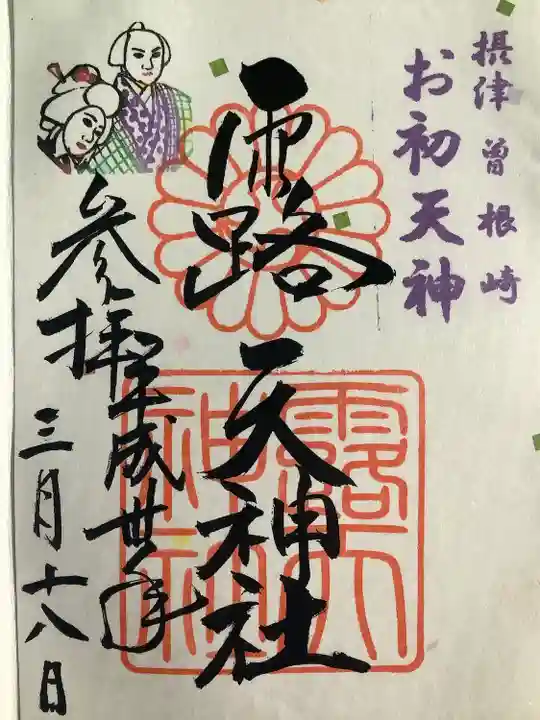 摂津 曽根崎
お初天神
露天神社
参拝 平成丗年
三月十八日